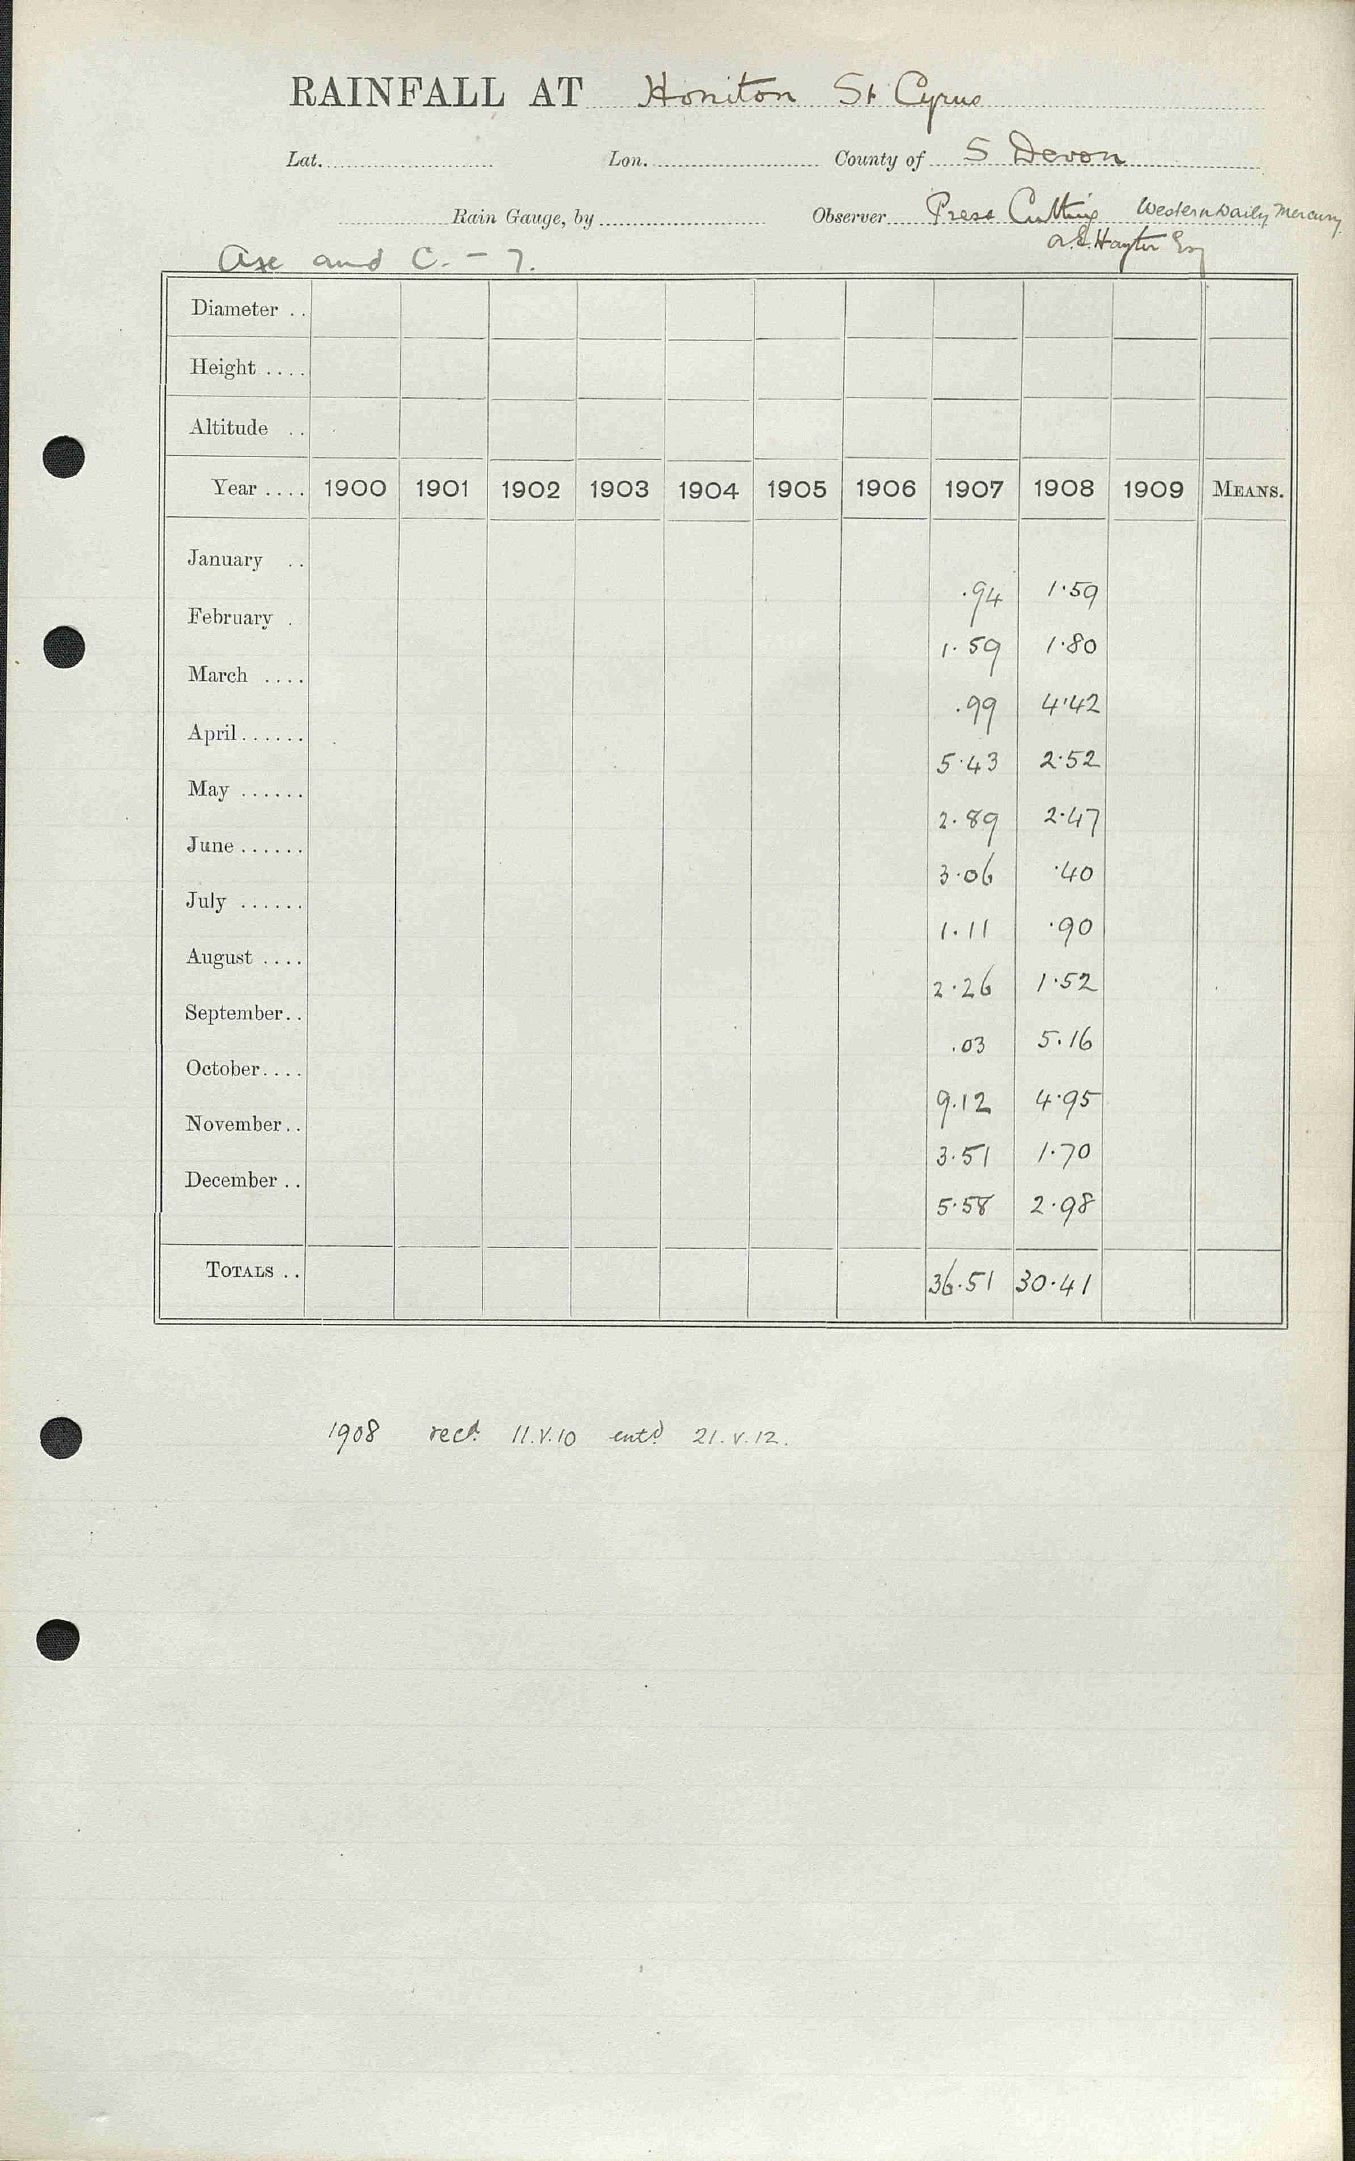 RAINFALL AT Honiton St Cyrus
Lat. Lon. County of S Devon
Rain Gauge, by Observer Press Cutting Western Daily Mercury
A.E. Hayter Esq
Axe and C. - 7.
Diameter ..
Height ....
Altitude ..
Year .... 1900 1901 1902 1903 1904 1905 1906 1907 1908 1909 MEANS.
January .. .94 1.59
February . 1.59 1.80
March .... .99 4.42
April ...... 5.43 2.52
May ...... 2.89 2.47
June ...... 3.06 .40
July ...... 1.11 .90
August .... 2.26 1.52
September .. .03 5.16
October .... 9.12 4.95
November .. 3.51 1.70
December .. 5.58 2.98
TOTALS .. 36.51 30.41
1908 recd 11.V.10 entd 21.V.12.